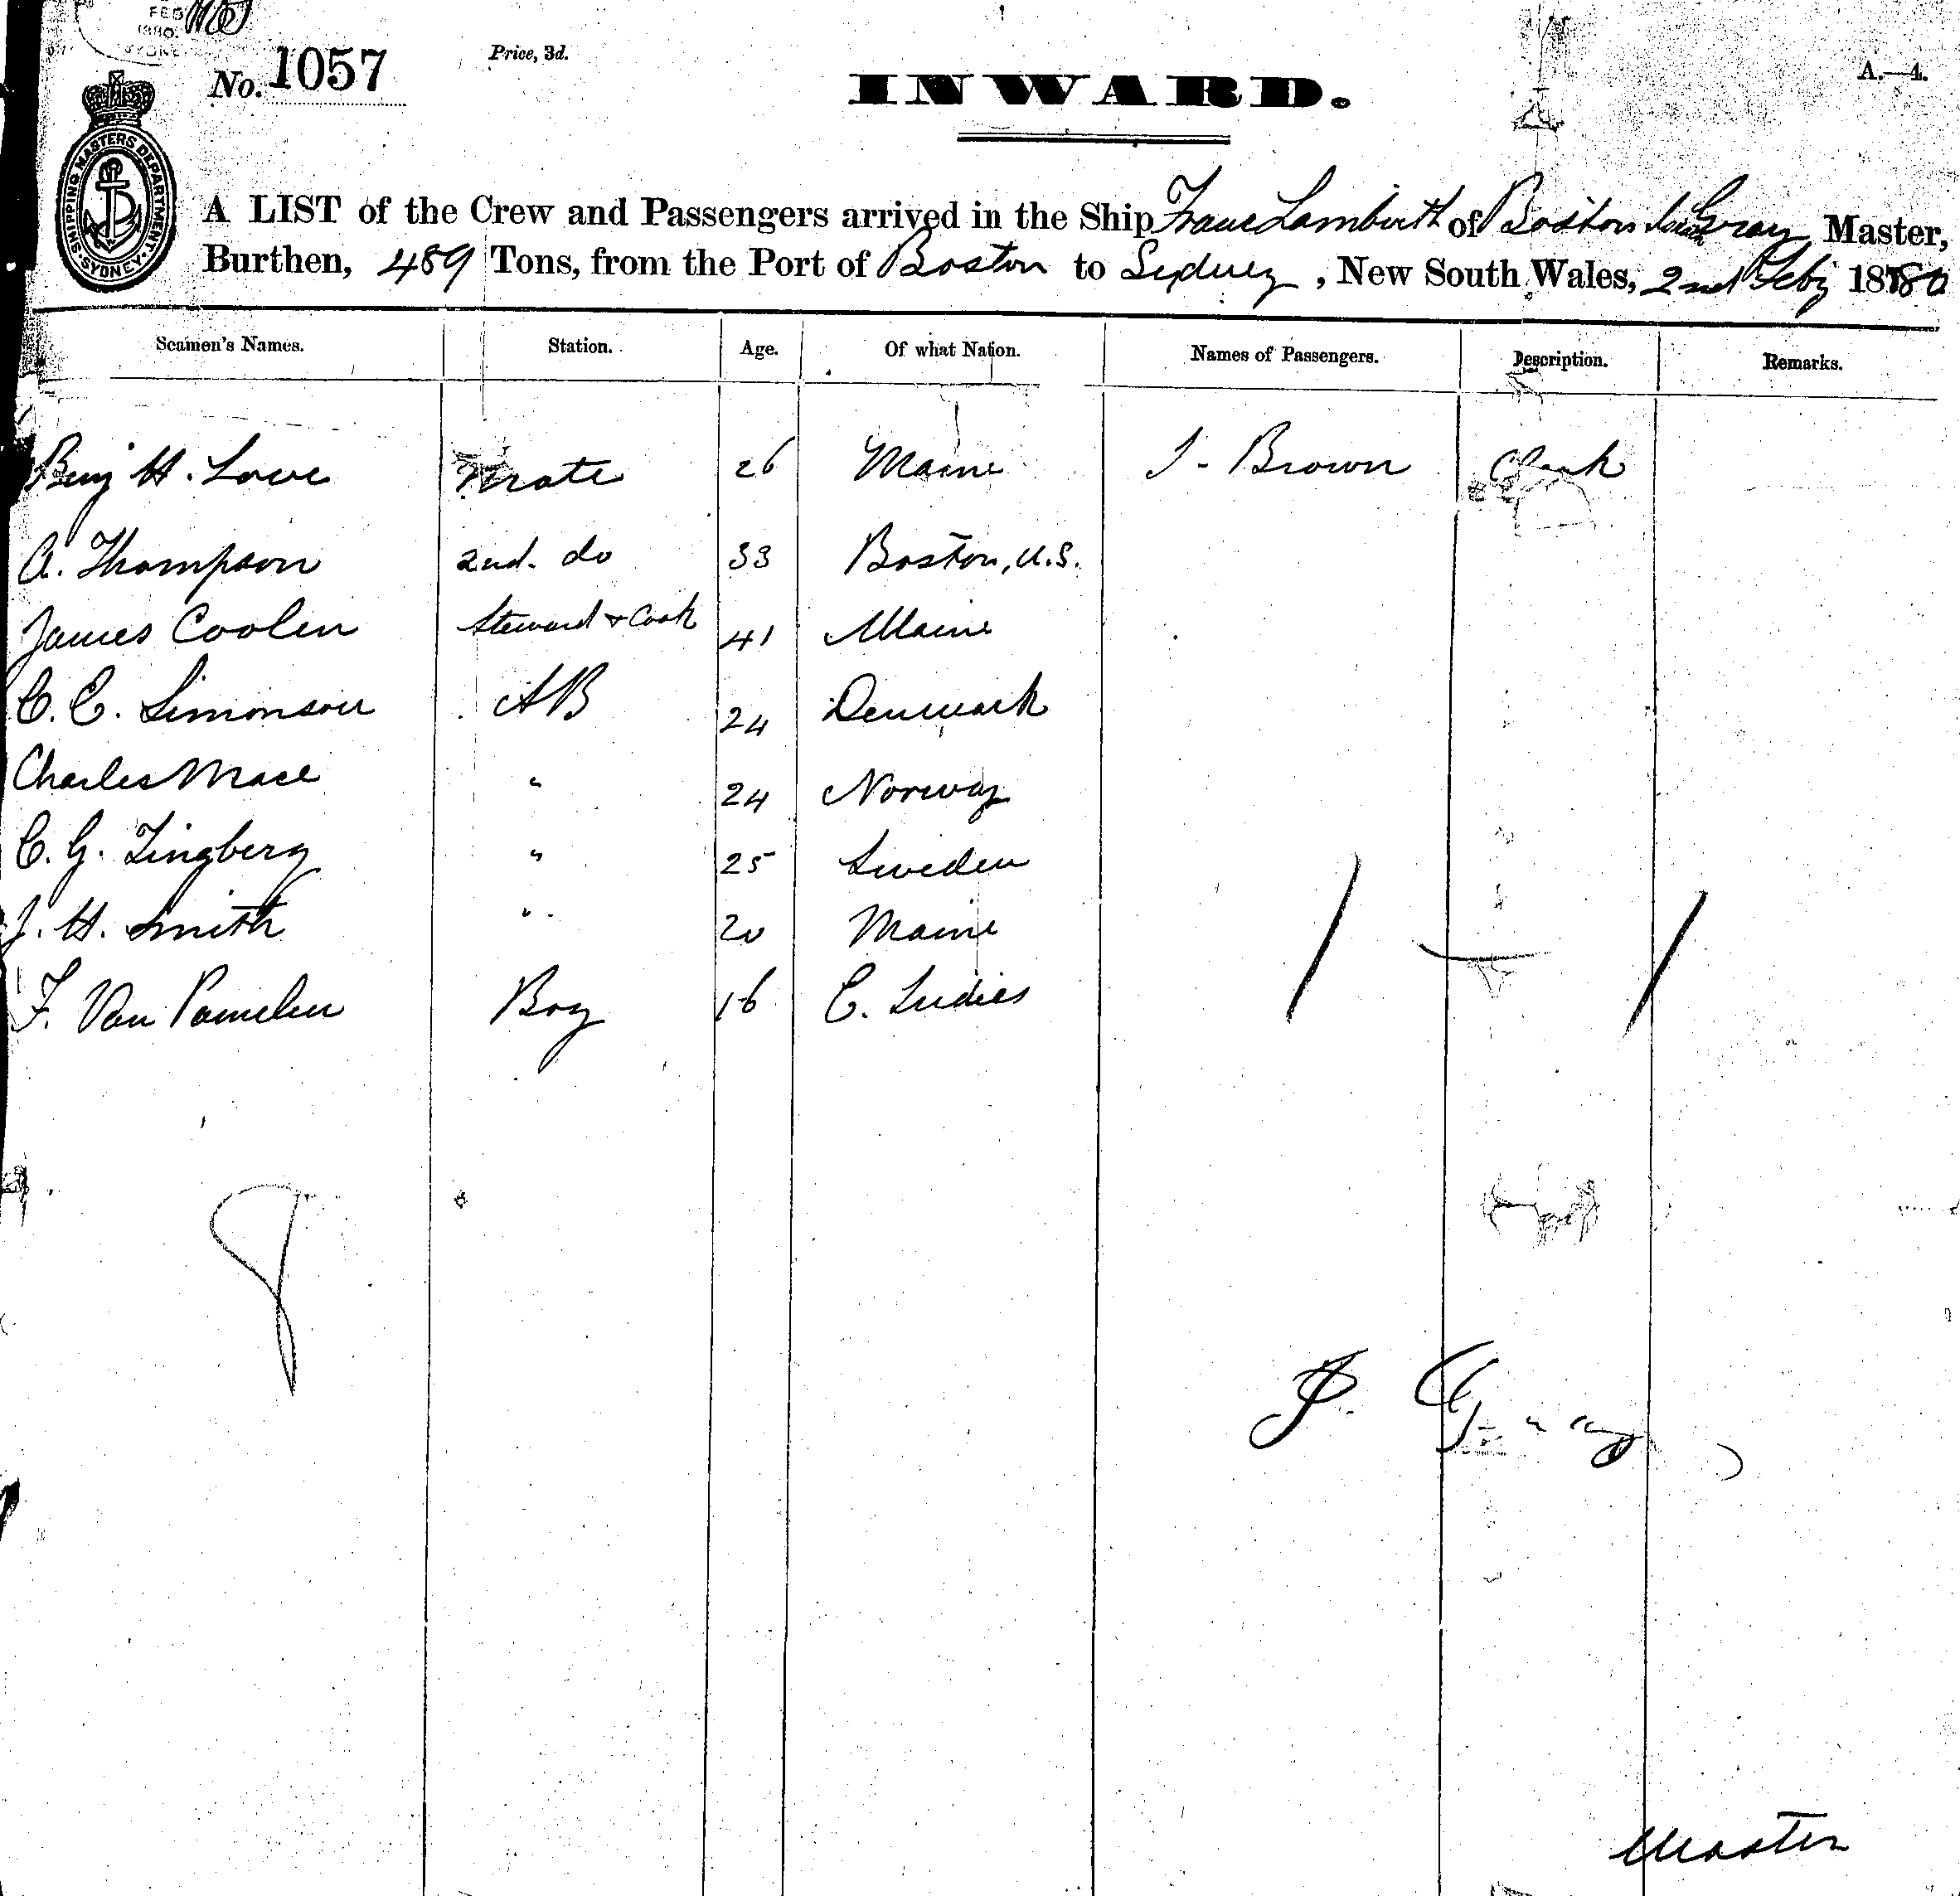 FEB
1880.
No. 1057
Price, 3d.
INWARD.
A.—4.
SHIPPING MASTERS DEPARTMENT
SYDNEY
A LIST of the Crew and Passengers arrived in the Ship Lamberth of Boston Gray Master,
Burthen, 489 Tons, from the Port of Boston to Sydney, New South Wales, 2nd Feby 1880
Seamen's Names. Station. Age. Of what Nation. Names of Passengers. Description. Remarks.
Benj H. Lowe Mate 26 Maine J - Brown Clerk
A. Thompson 2nd. do 33 Boston, U.S.
James Coolen Steward & Cook 41 Maine
C. C. Simonson AB 24 Denmark
Charles Mace " 24 Norway
C. G. Lingberg " 25 Sweden
J. H. Smith " 20 Maine
F. Van Pamelen Boy 16 E. Indies
8
1
1
J. Gray
Master